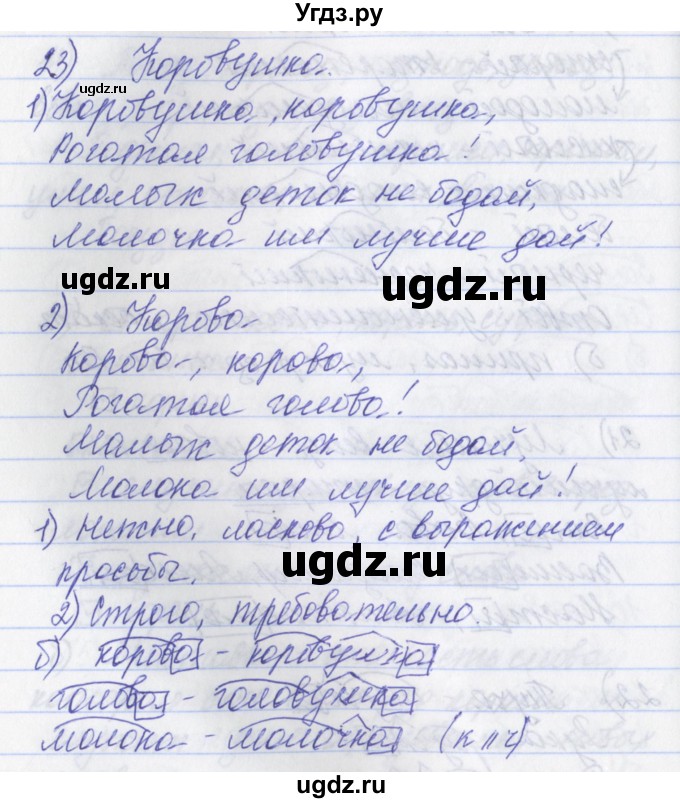 Угдз.ру
23) Коровушка.
1) Коровушка, коровушка,
Рогатая головушка!
Малых деток не бодай,
Молочка им лучше дай!
2) Корова
Корова, корова,
Рогатая голова!
Малых деток не бодай,
Молока им лучше дай!
1) Нежно, ласково, с выражением
просьбы.
2) Строго, требовательно.
б) корова - коровушка
голова - головушка
молока - молочка (к // ч)
ugdz.ru
ugdz.ru
ugdz.ru
ugdz.ru
ugdz.ru
ugdz.ru